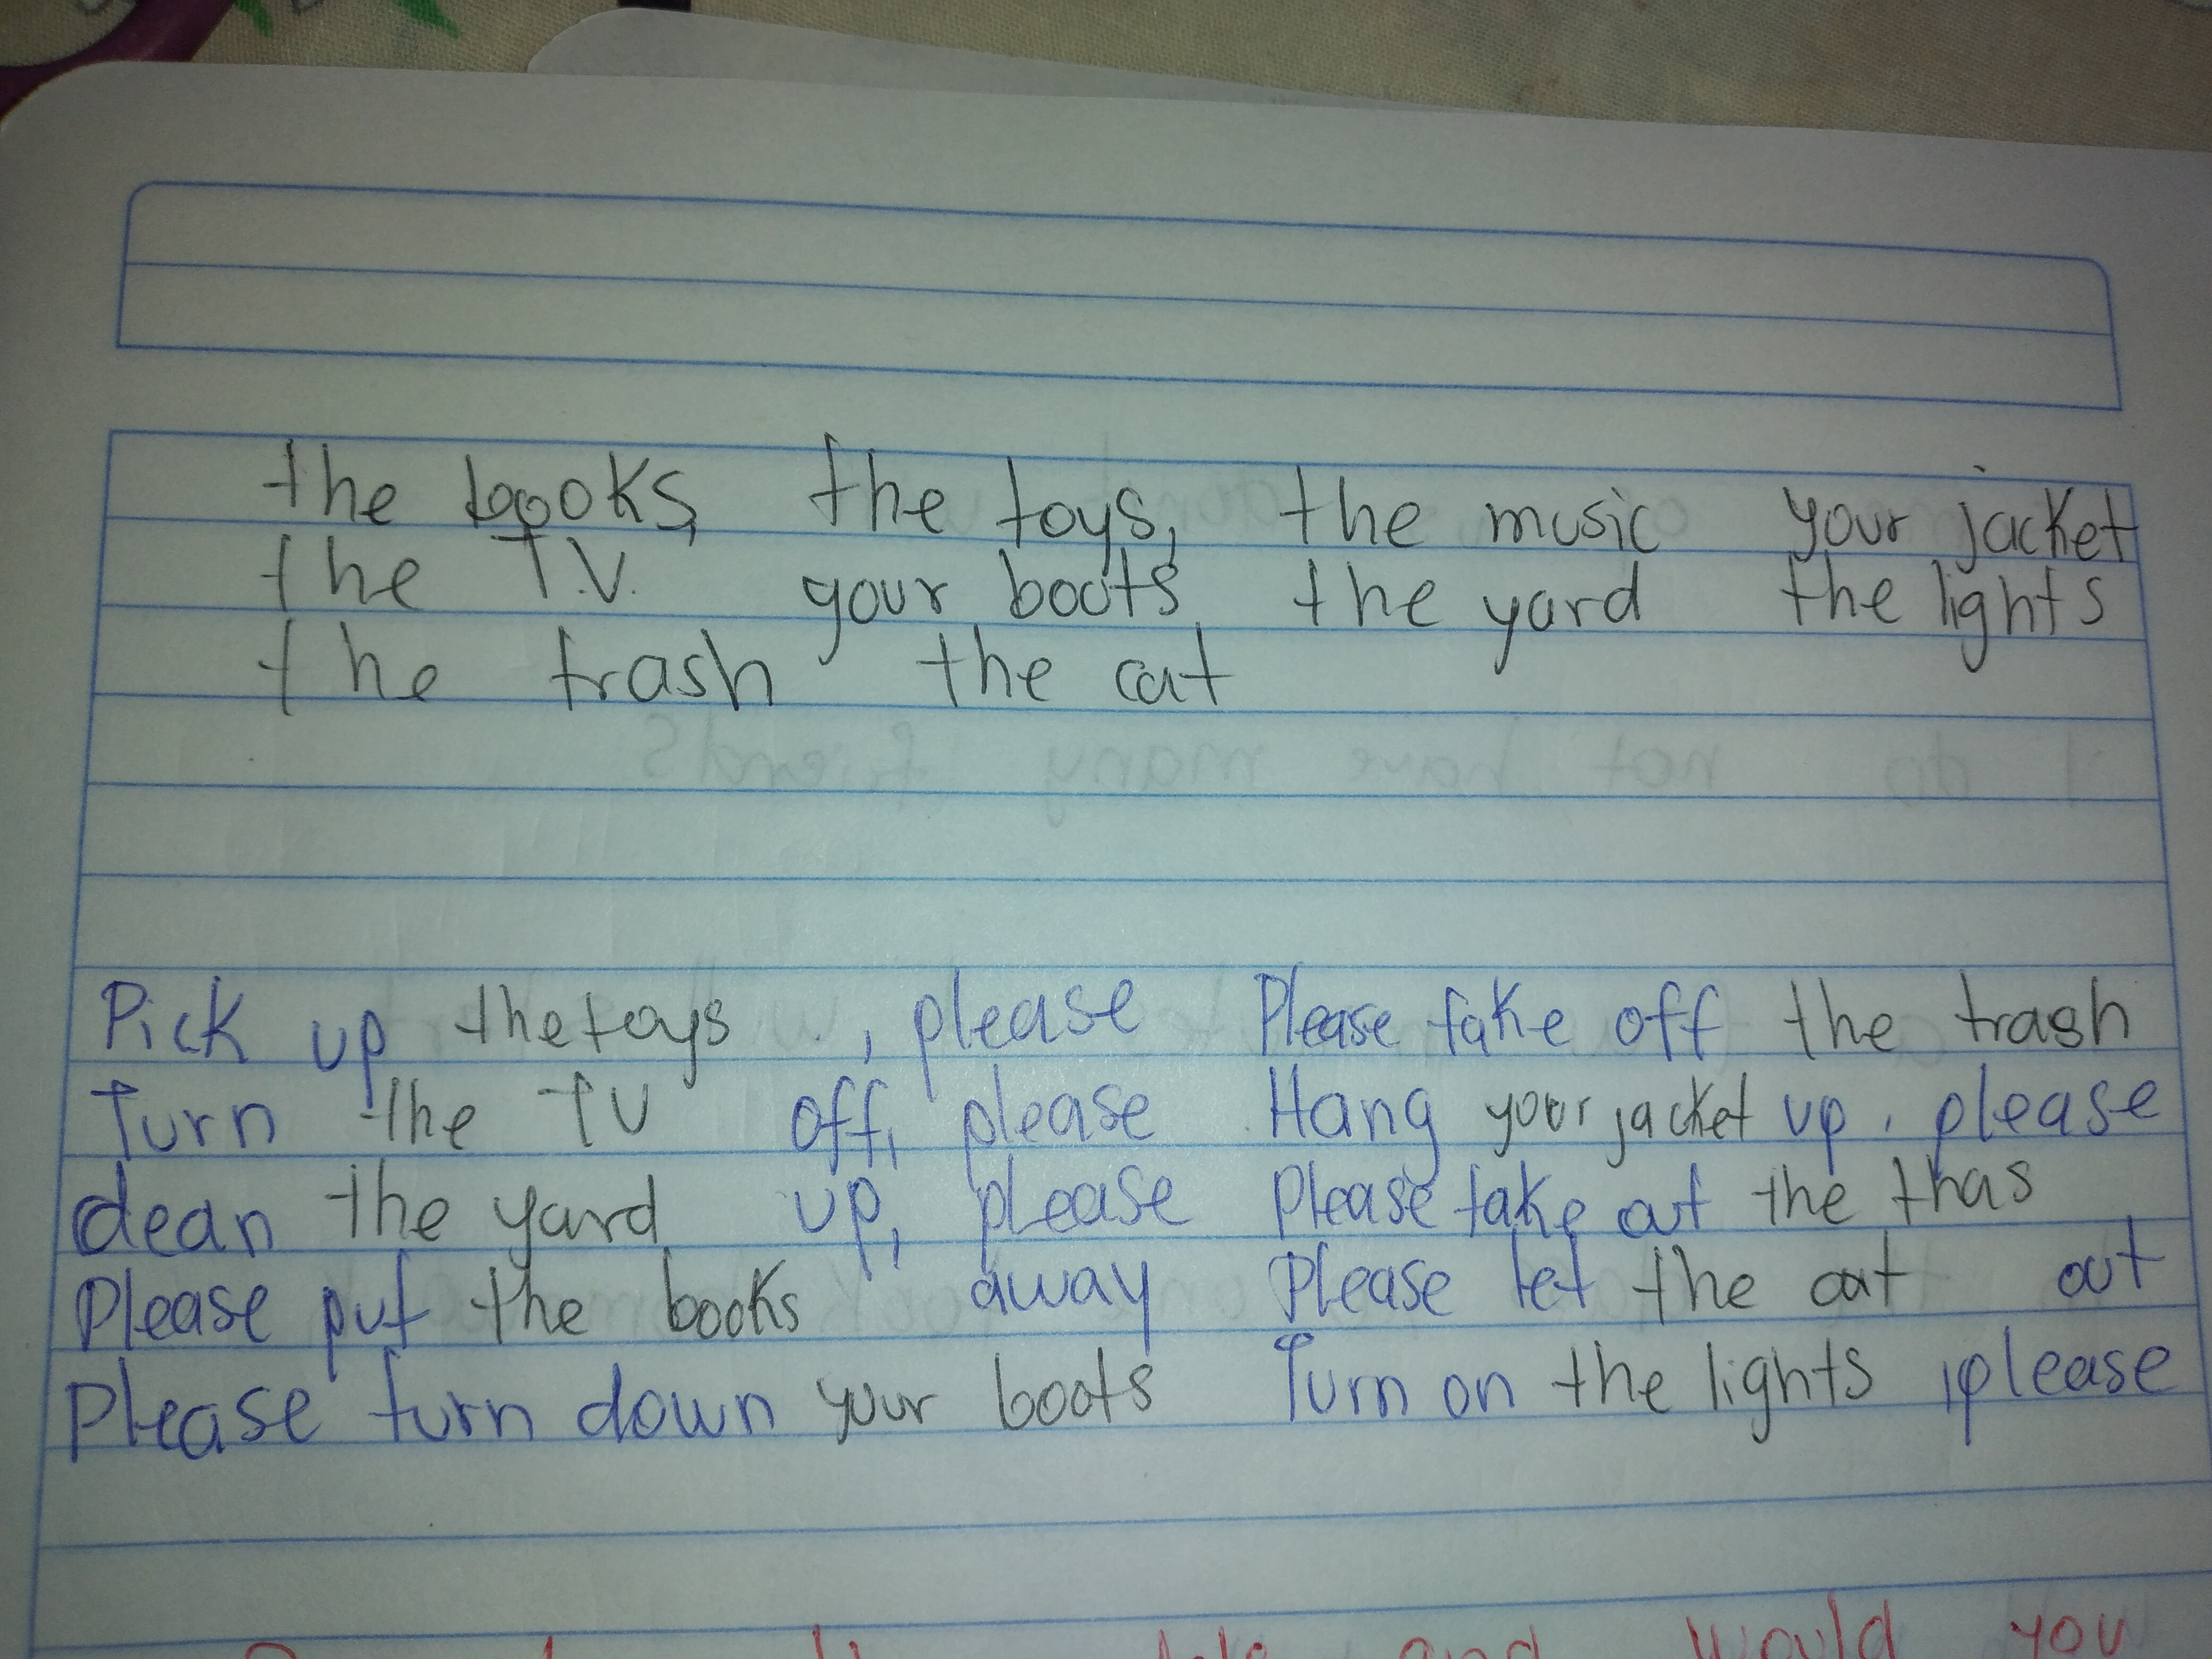 the books, the toys, the music your jacket
the T.V. your boots the yard the lights
the trash the cat
Pick up the toys , please Please take off the trash
Turn the TV off, please Hang your jacket up, please
clean the yard up, please Please take out the thas
Please put the books away Please let the cat out
Please turn down your boots Turn on the lights , please
and would you